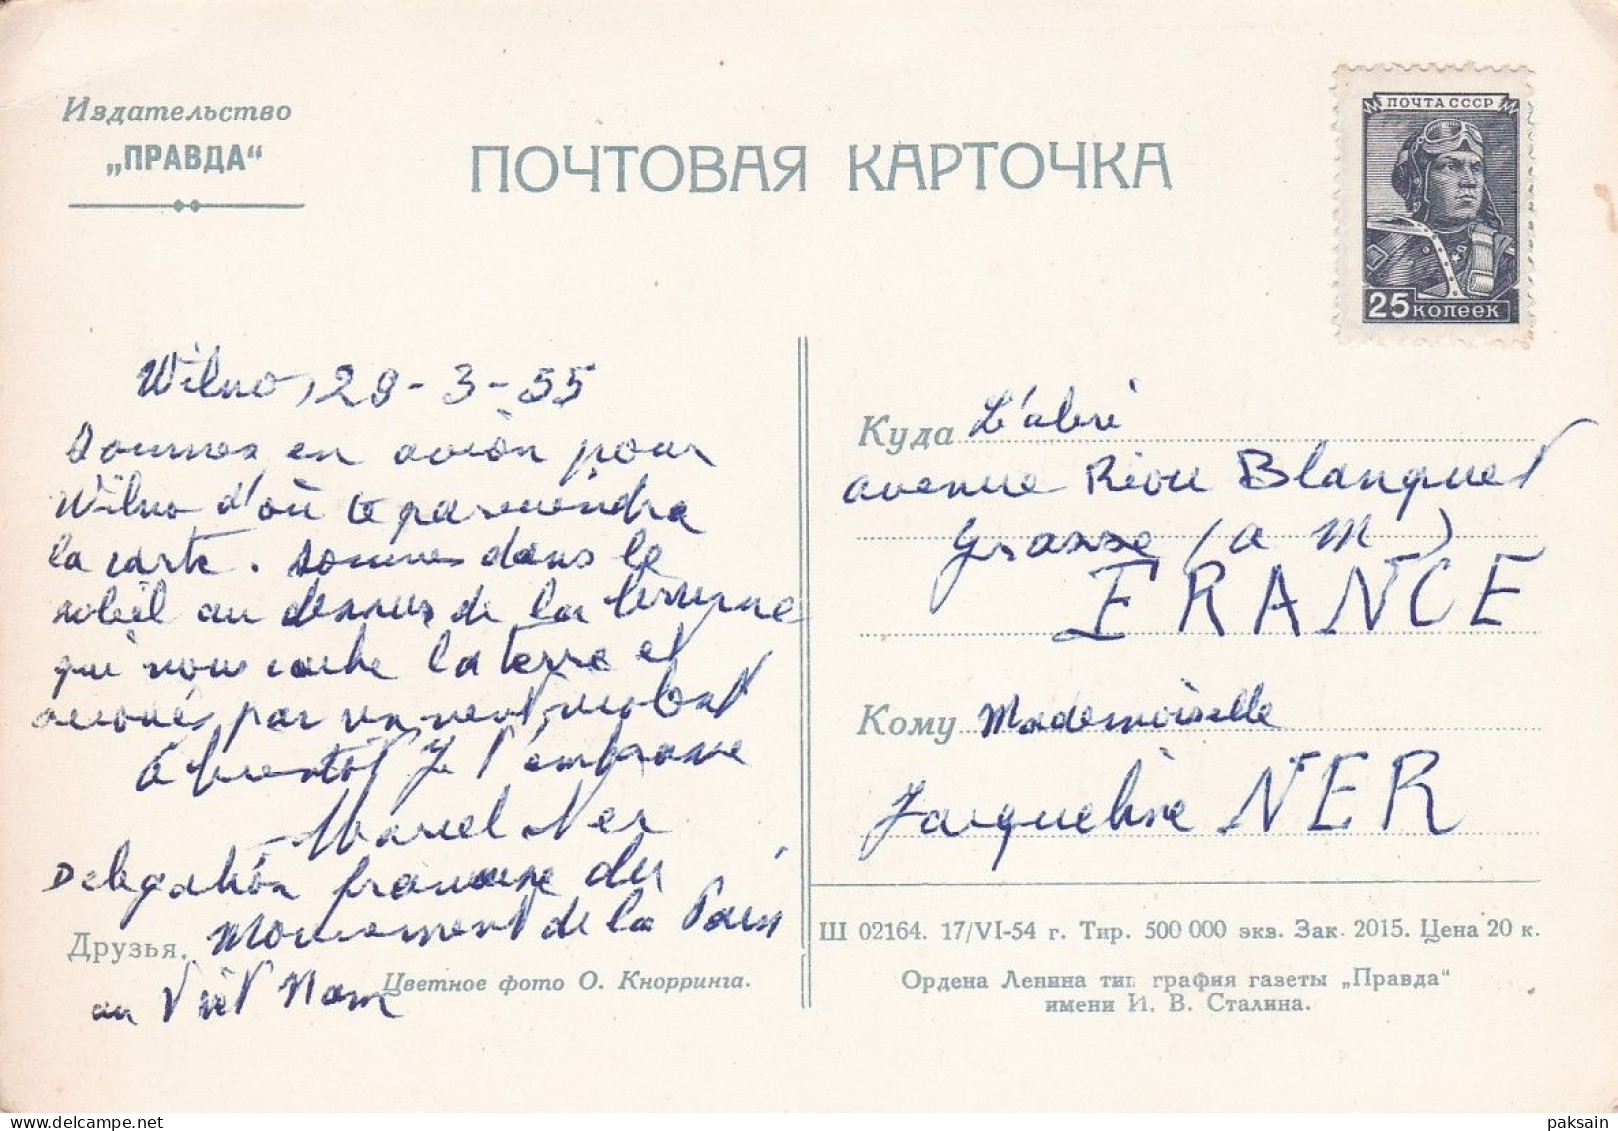 Издательство
„ПРАВДА“
ПОЧТОВАЯ КАРТОЧКА
ПОЧТА СССР
25 КОПЕЕК
Wilno, 29-3-55
sommes en avion pour
Wilno d'où te parviendra
la carte. sommes dans le
soleil au dessus de la brume
qui nous cache la terre et
secoués par un vent violent
à bientôt je t'embrasse
Marcel Ner
Délégation française du
Mouvement de la Paix
au Viet Nam
Друзья.
Цветное фото О. Кнорринга.
Куда L'abri
avenue Riou Blanquet
Grasse (a m)
FRANCE
Кому Mademoiselle
Jacqueline NER
Ш 02164. 17/VI-54 г. Тир. 500 000 экз. Зак. 2015. Цена 20 к.
Ордена Ленина тип графия газеты „Правда“
имени И. В. Сталина.
paksain